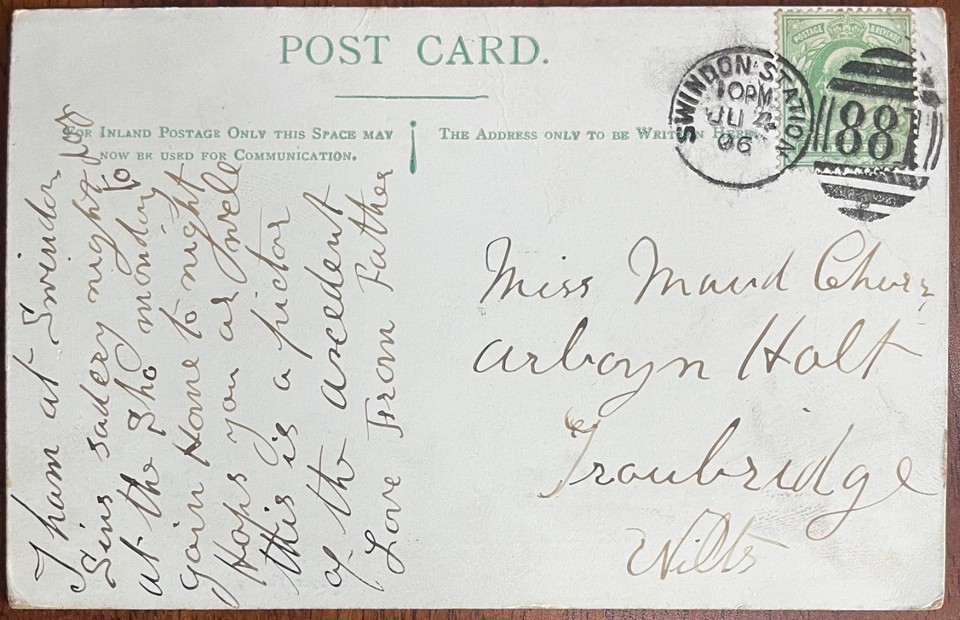 POST CARD.
FOR INLAND POSTAGE ONLY THIS SPACE MAY
NOW BE USED FOR COMMUNICATION.
THE ADDRESS ONLY TO BE WRITTEN HERE.
POSTAGE & REVENUE
SWINDON·STATION
10PM
JU 4
06
88
I ham at Swindon
Sins sadery night
at the Sho monday to
gain Home to night
Hops you ar well
this is a pictar
of the axcedent
Love From Father
Miss Maud
arboyn Holt
Troubridge
Wilts